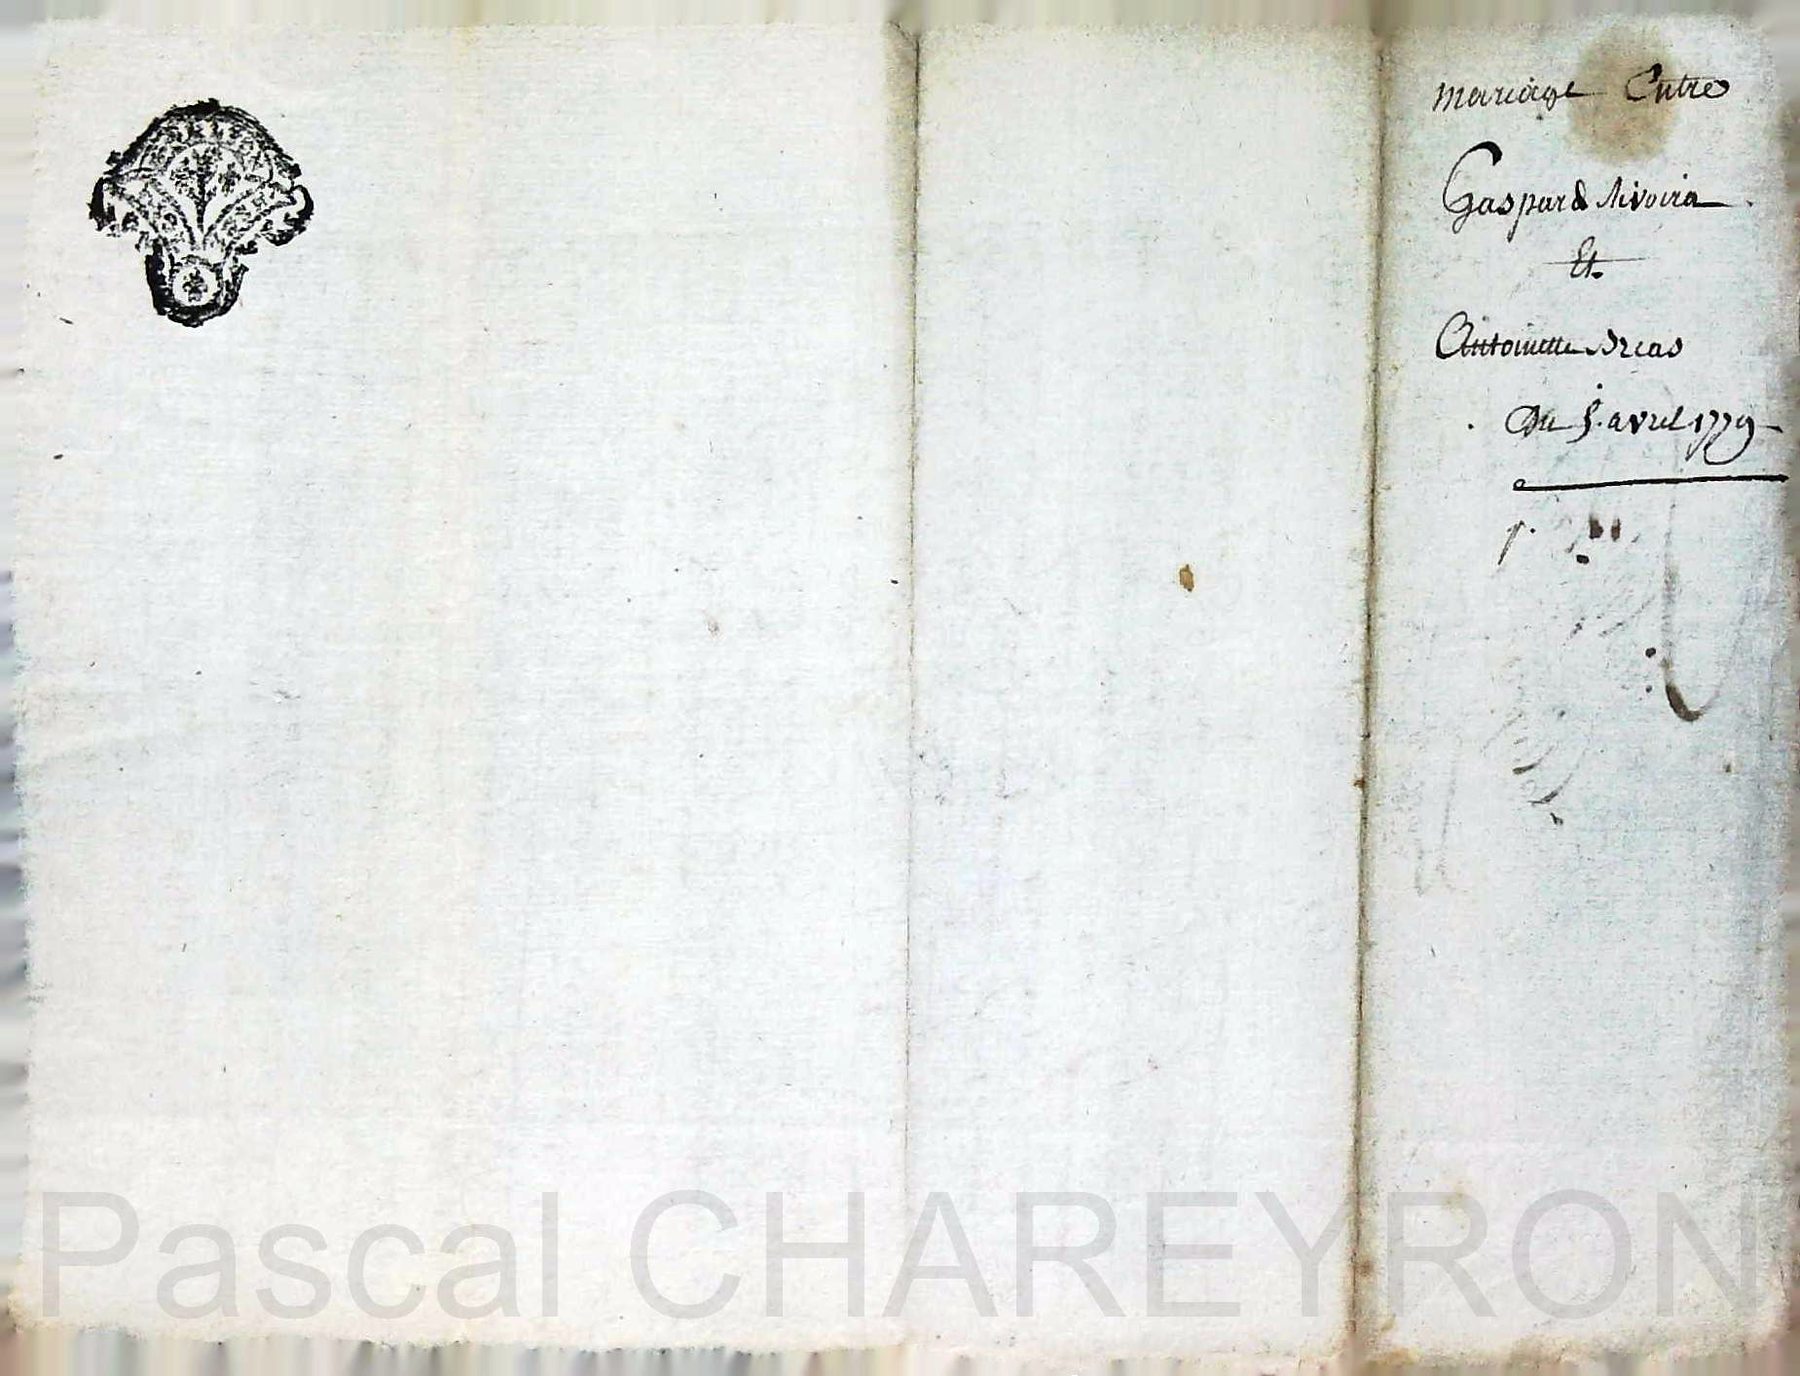 mariage Entre
Gaspard Rivoira
Et
Antoinette Breas
Du 5. avril 1779
p.
Pascal CHAREYRON